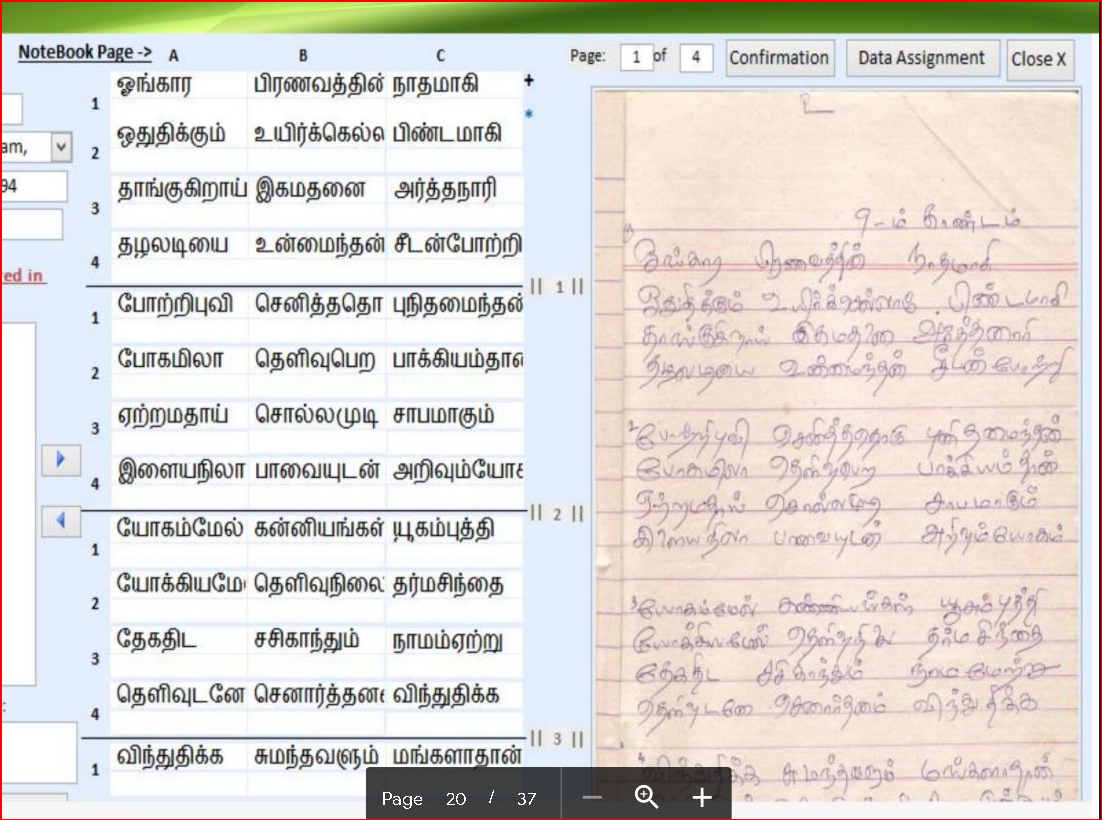 NoteBook Page -> A B C
Page: 1 of 4 Confirmation Data Assignment Close X
1 ஓங்கார பிரணவத்தின் நாதமாகி +
*
2 ஒதுதிக்கும் உயிர்க்கெல்ல பிண்டமாகி
am,
94
3 தாங்குகிறாய் இகமதனை அர்த்தநாரி
4 தழலடியை உன்மைந்தன் சீடன்போற்றி
ed in
|| 1 ||
1 போற்றிபுவி செனித்ததொ புநிதமைந்தன்
2 போகமிலா தெளிவுபெற பாக்கியம்தான
3 ஏற்றமதாய் சொல்லமுடி சாபமாகும்
4 இளையநிலா பாவையுடன் அறிவும்யோக
|| 2 ||
1 யோகம்மேல் கன்னியங்கள் யூகம்புத்தி
2 யோக்கியமே தெளிவுநிலை தர்மசிந்தை
3 தேகதிட சசிகாந்தும் நாமம்ஏற்று
4 தெளிவுடனே செனார்த்தன விந்துதிக்க
|| 3 ||
1 விந்துதிக்க சுமந்தவளும் மங்களாதான்
உ
9-ம் காண்டம்
ஓங்கார பிரணவத்தின் நாதமாகி
ஒதுதிக்கும் உயிர்க்கெல்லாம் பிண்டமாகி
தாங்குகிறாய் இகமதனை அர்த்தனாரி
தழலடியை உன்மைந்தன் சீடன்போற்றி
2 போற்றிபுவி செனித்ததொரு புனிதமைந்தன்
போகமிலா தெளிவுபெற பாக்கியம்தான்
ஏற்றமதாய் சொல்லமுடி சாபமாகும்
இளையநிலா பாவையுடன் அறிவும்யோகம்
3 யோகம்மேல் கண்ணியங்கள் யூகம்புத்தி
யோக்கியமேல் தெளிவுநிலை தர்மசிந்தை
தேகதிட சசிகாந்தம் நாமமேற்று
தெளிவுடனே செனார்தனம் விந்துதிக்க
4 விந்துதிக்க சுமந்தவளும் மங்களாதான்
Page 20 / 37